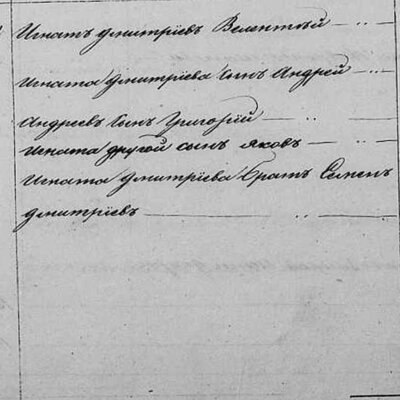 Игнатъ Дмитріевъ Велентѣй
Игната Дмитріева Сынъ Андрей
Андреевъ Сынъ Григорій
Игната другой сынъ Яковъ
Игната Дмитріева братъ Семенъ
Дмитріевъ